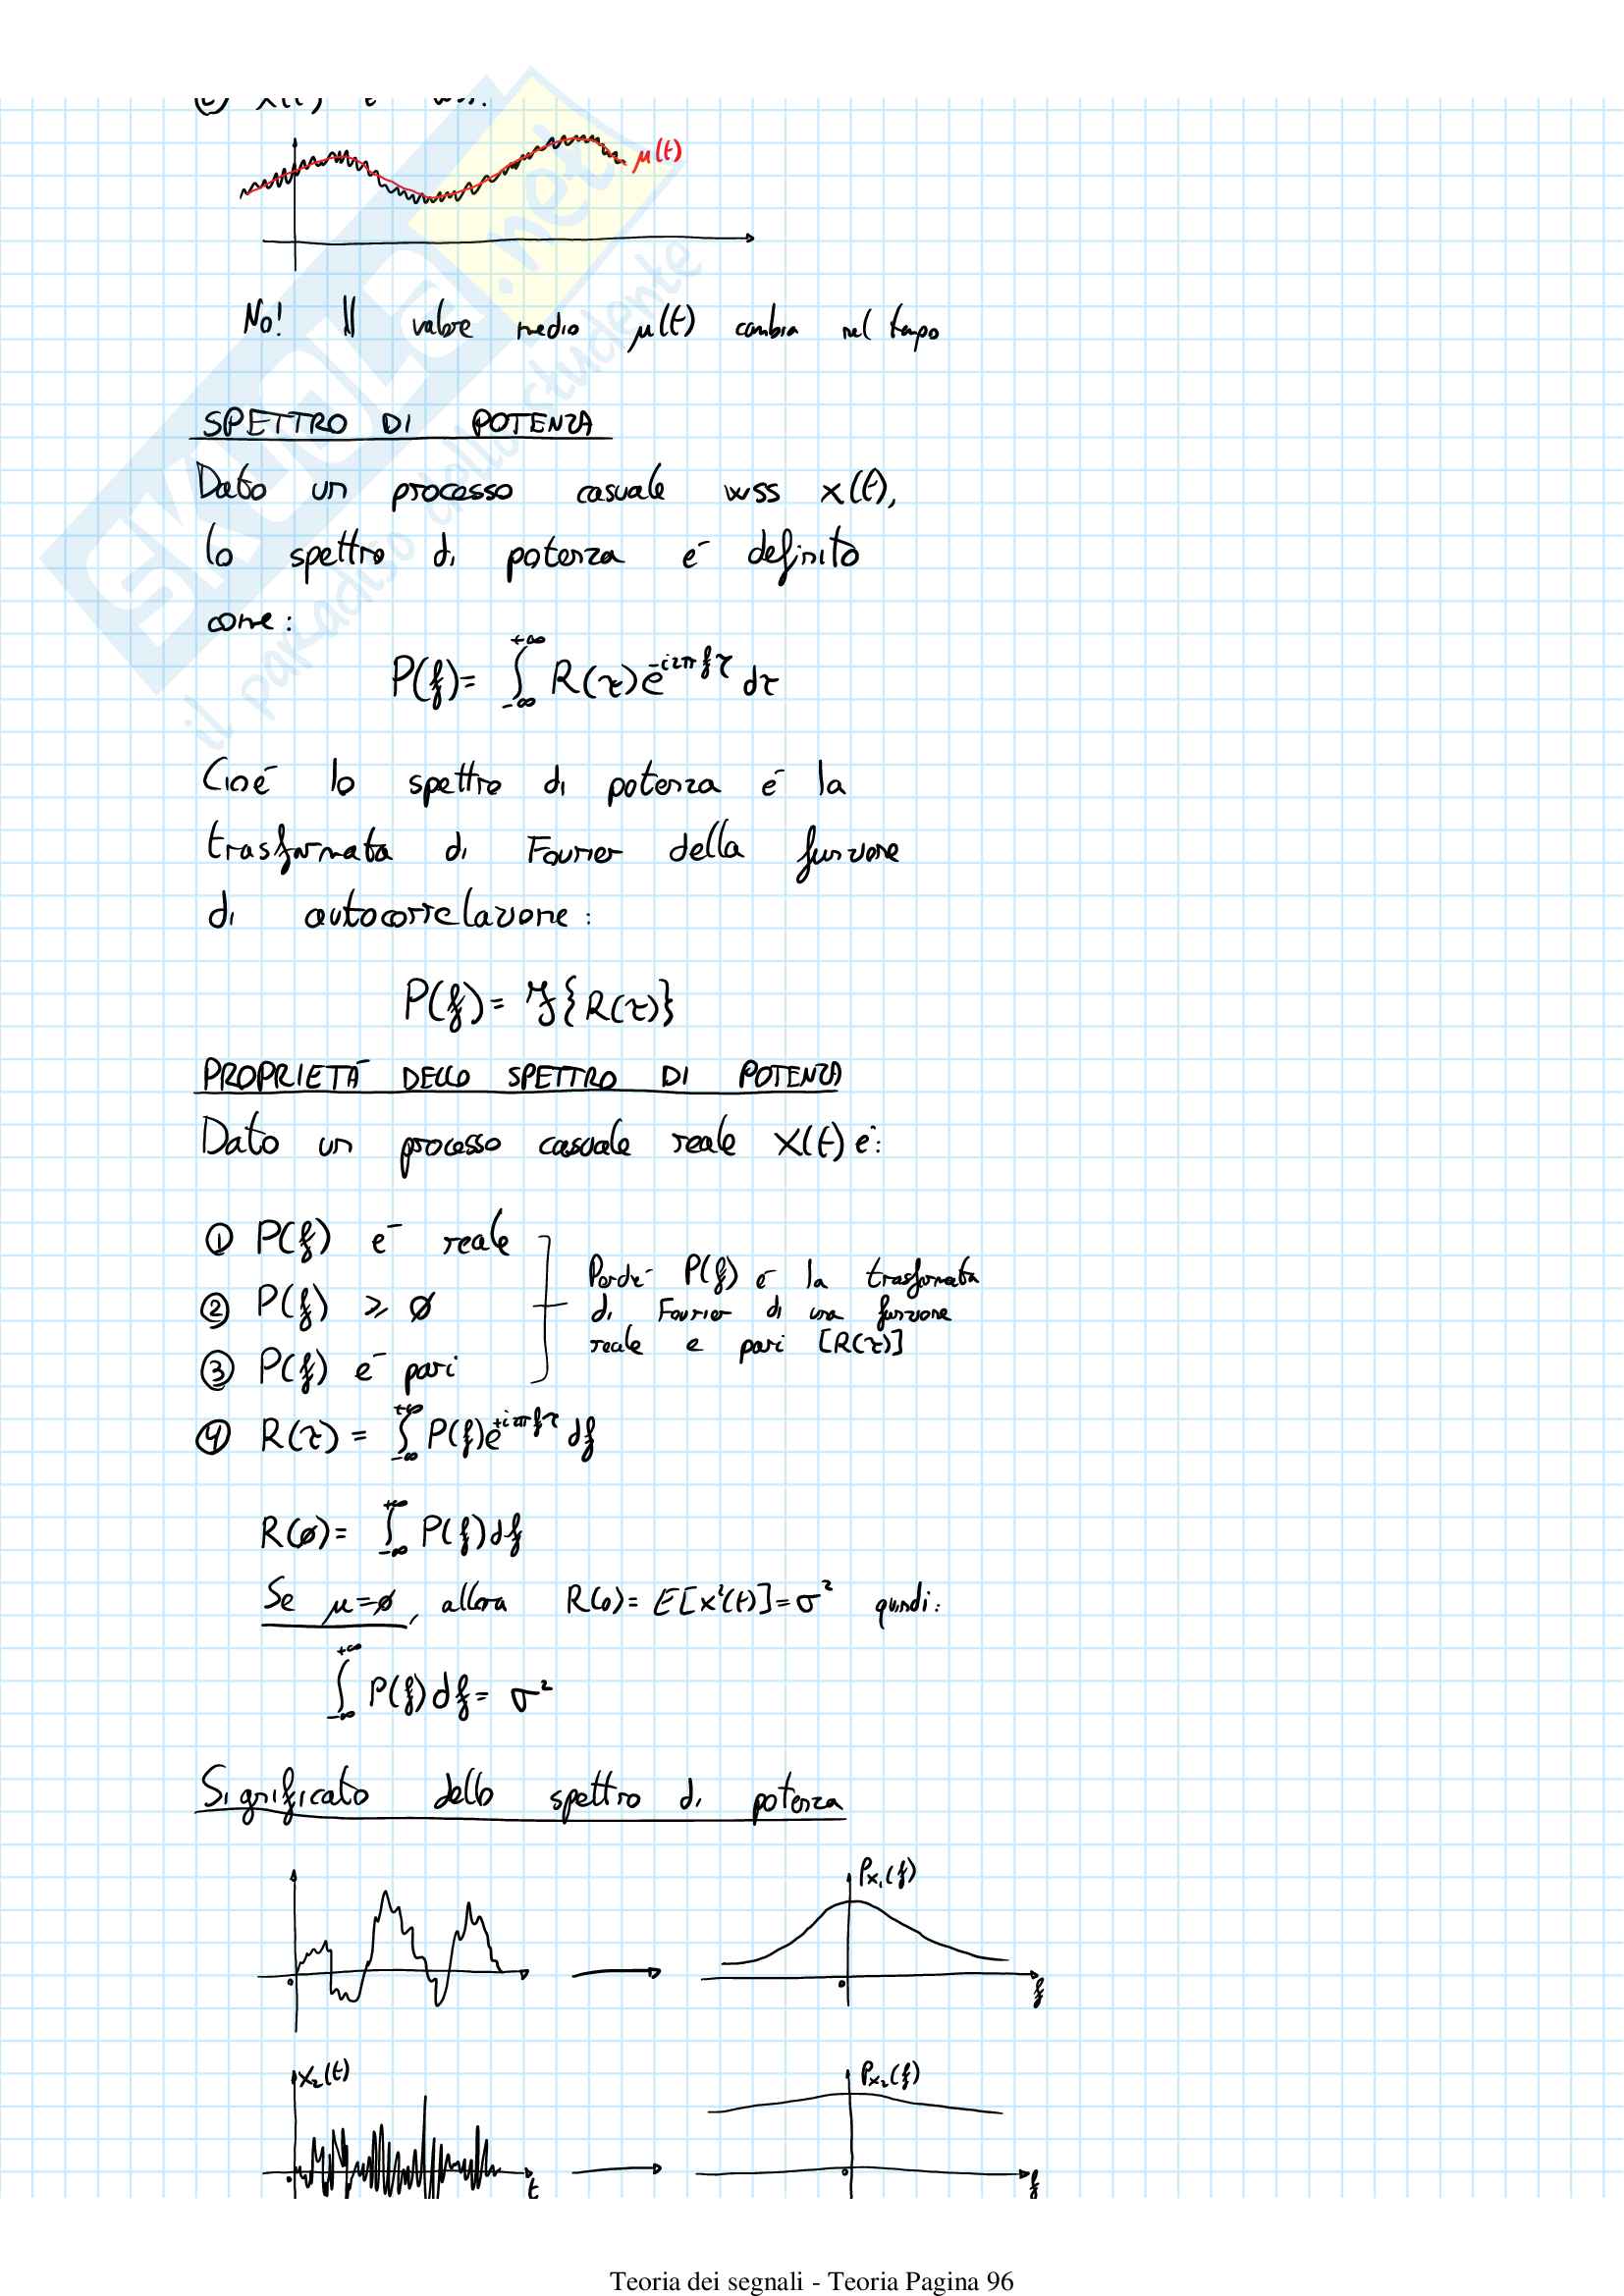 ② x(t) è wss?
μ(t)
No! Il valore medio μ(t) cambia nel tempo
SPETTRO DI POTENZA
Dato un processo casuale wss x(t),
lo spettro di potenza é definito
come:
P(f)= ∫_{-∞}^{+∞} R(τ)e^{-i2πfτ} dτ
Cioé lo spettro di potenza é la
trasformata di Fourier della funzione
di autocorrelazione:
P(f)= F{R(τ)}
PROPRIETÀ DELLO SPETTRO DI POTENZA
Dato un processo casuale reale X(t) è:
① P(f) è reale
② P(f) ≥ 0
③ P(f) è pari
Perché P(f) é la trasformata
di Fourier di una funzione
reale e pari [R(τ)]
④ R(τ) = ∫_{-∞}^{+∞} P(f)e^{+i2πfτ} df
R(0)= ∫_{-∞}^{+∞} P(f)df
Se μ=0, allora R(0)= E[x²(t)]=σ² quindi:
∫_{-∞}^{+∞} P(f)df= σ²
Significato dello spettro di potenza
Px₁(f)
0
0
f
x₂(t)
Px₂(f)
0
t
0
f
SKUOLA.net
il paradiso dello studente
Teoria dei segnali - Teoria Pagina 96